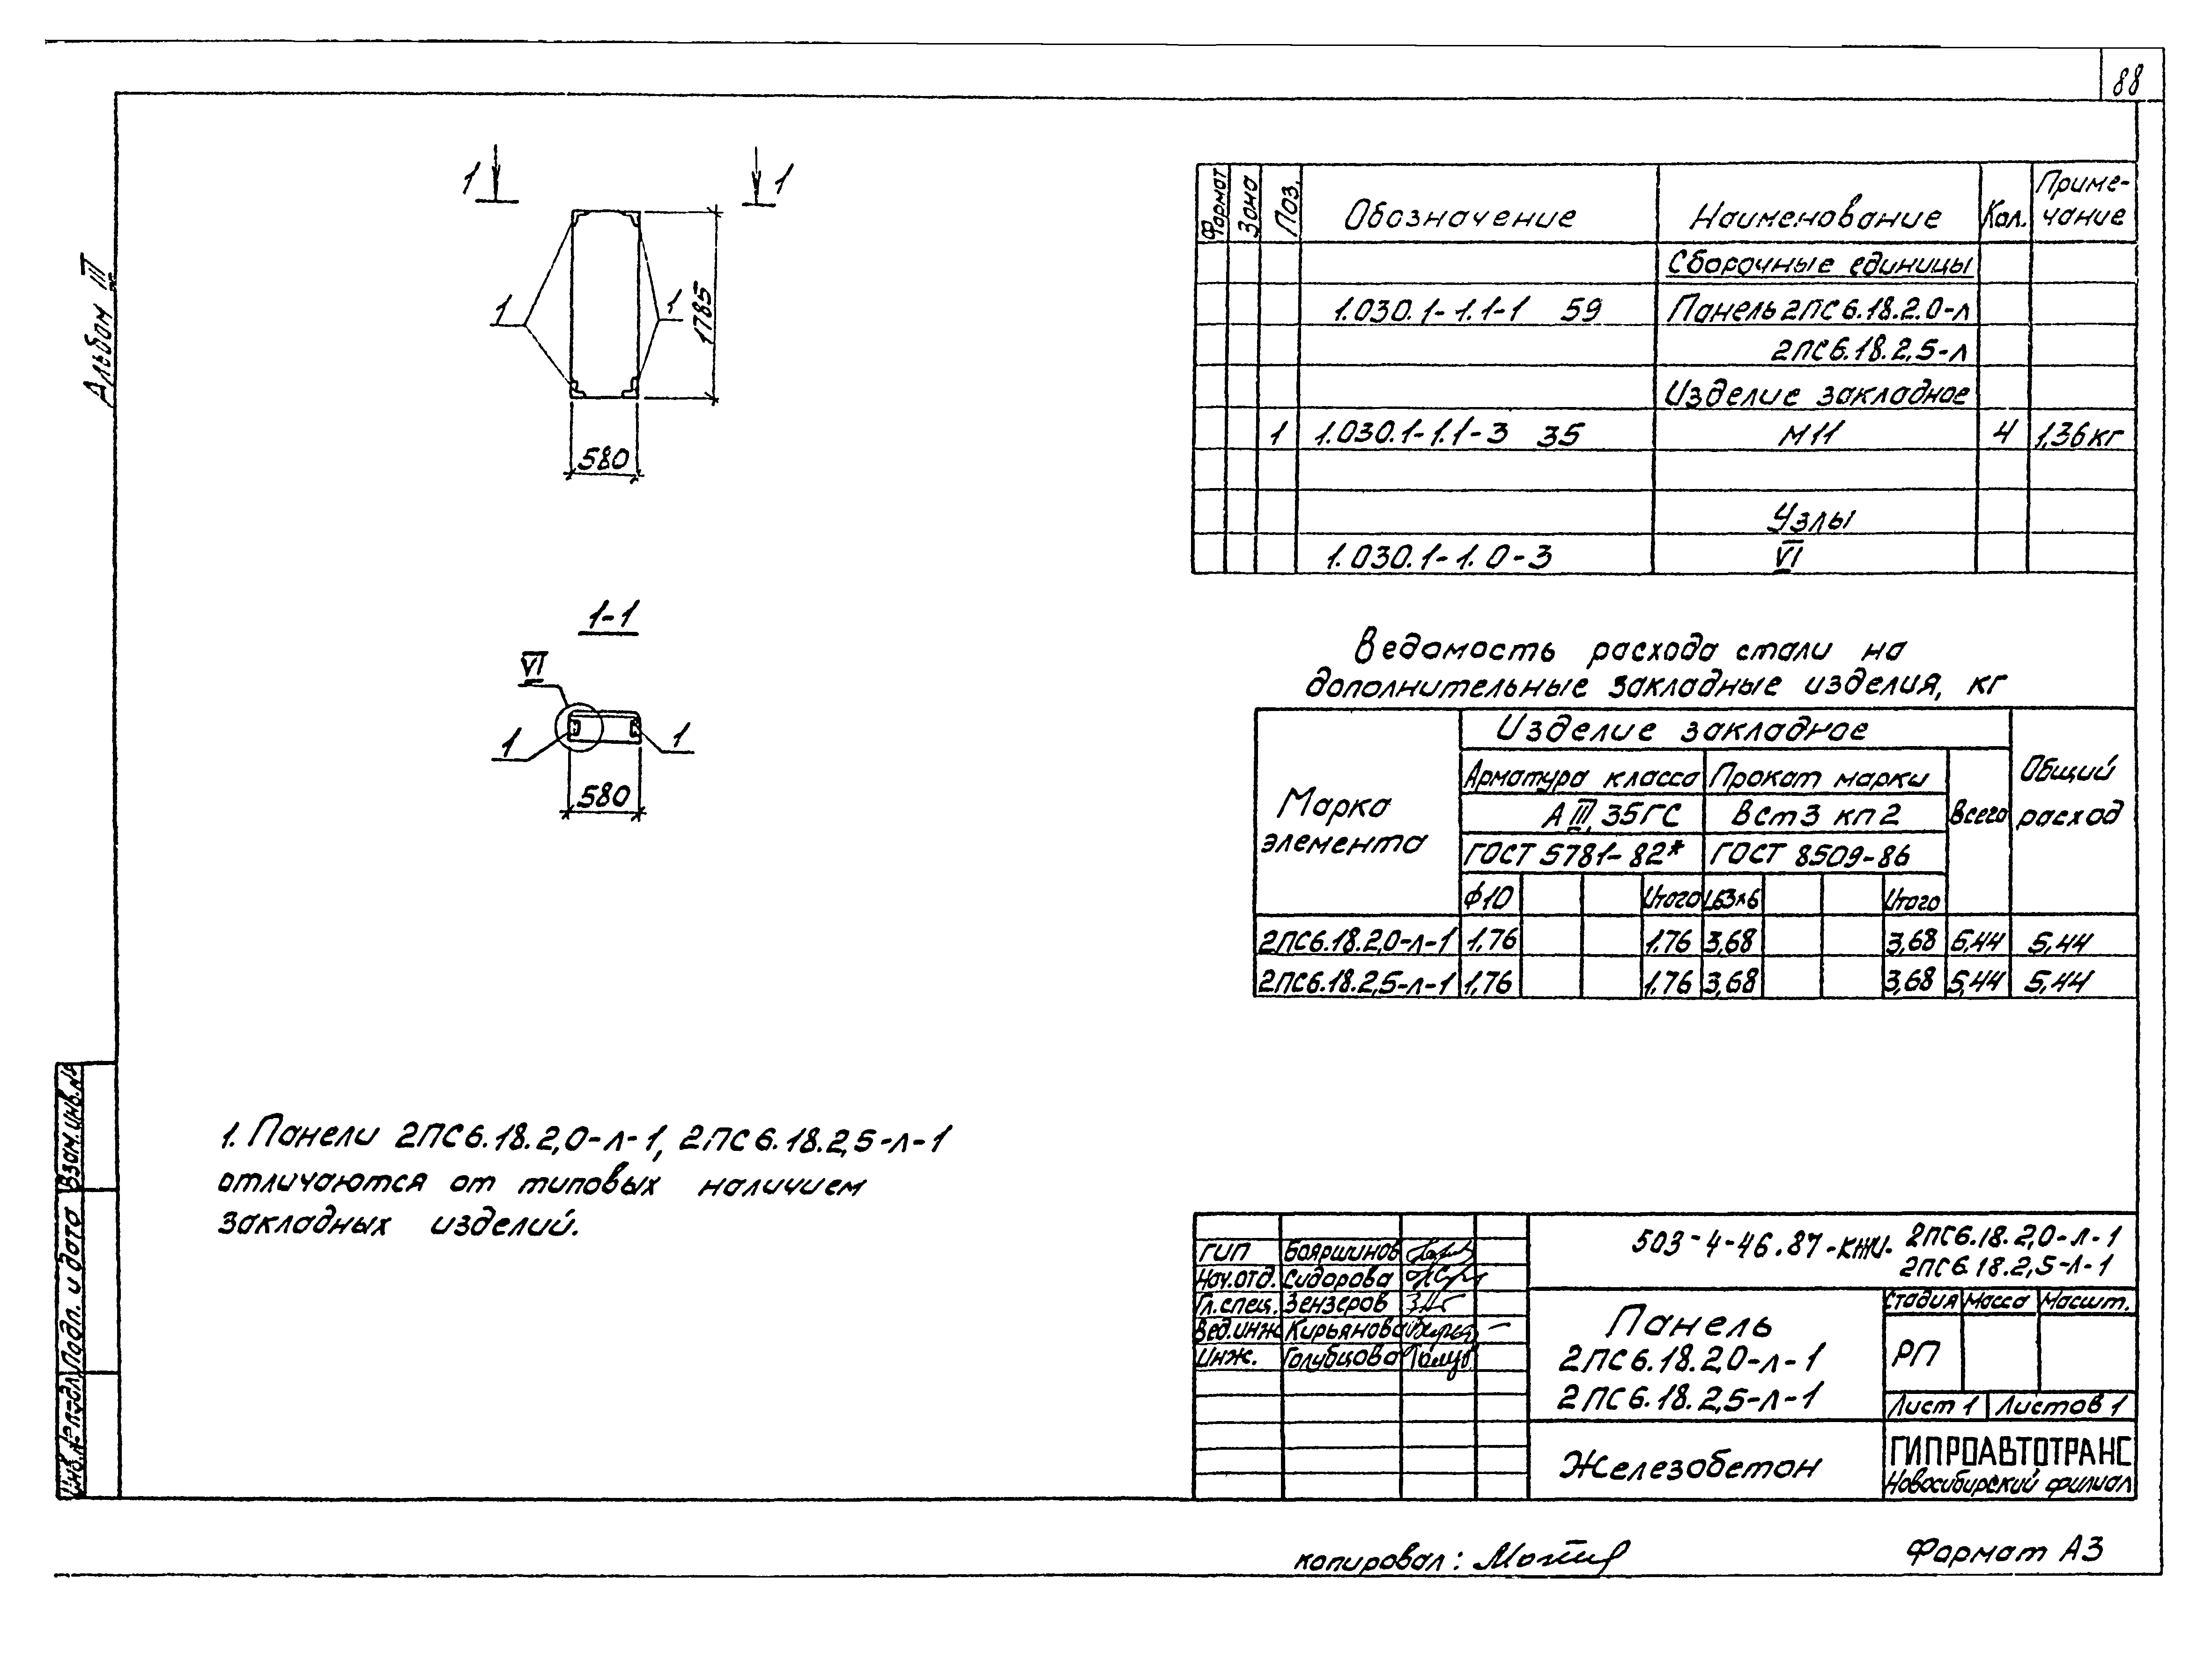 88
Альбом III
1 1
1 1
1785
580
1-1
VI
1 1
580
Формат Зона Поз. Обозначение Наименование Кол. Приме-
чание
Сборочные единицы
1.030.1-1.1-1 59 Панель 2ПС6.18.2.0-л
2ПС6.18.2,5-л
Изделие закладное
1 1.030.1-1.1-3 35 М11 4 1,36кг
Узлы
1.030.1-1.0-3 VI
Ведомость расхода стали на
дополнительные закладные изделия, кг
Марка
элемента
Изделие закладное
Арматура класса Прокат марки
А III, 35ГС ВСт3 кп2
ГОСТ 5781-82* ГОСТ 8509-86
Всего
Общий
расход
ф10 Итого L63х6 Итого
2ПС6.18.2,0-л-1 1,76 1,76 3,68 3,68 5,44 5,44
2ПС6.18.2,5-л-1 1,76 1,76 3,68 3,68 5,44 5,44
1. Панели 2ПС6.18.2,0-л-1, 2ПС6.18.2,5-л-1
отличаются от типовых наличием
закладных изделий.
Взам.инв.№
Подп. и дата
Инв.№подл.
ГИП Бояршинов
Нач.отд. Сидорова
Гл.спец. Зензеров
Вед.инж Кирьянова
Инж. Голубцова
503-4-46.87-КЖИ- 2ПС6.18.2,0-л-1
2ПС6.18.2,5-л-1
Панель
2ПС6.18.2,0-л-1
2ПС6.18.2,5-л-1
Стадия Масса Масшт.
РП
Лист 1 Листов 1
Железобетон
ГИПРОАВТОТРАНС
Новосибирский филиал
копировал:
Формат А3